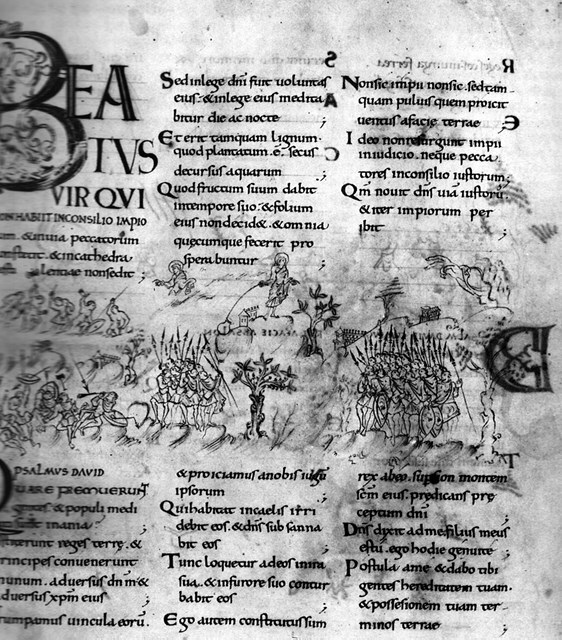 BEA
TVS
VIR QVI
NON HABIIT INCONSILIO IMPIO
rum. & inuia peccatorum
non stetit. & incathedra
lentiae nonsedit ;
Sed inlege dni fuit uoluntas
eius. & inlege eius medita
bitur die ac nocte ;
Et erit tamquam lignum.
quod plantatum .e. secus
decursus aquarum
Quod fructum suum dabit
intempore suo. & folium
eius non decid&. & omnia
quecumque fecerit pro
spera buntur ;
Nonsic impii nonsic. sed tam
quam puluis quem proicit
uentus afacie terrae ;
Ideo non resurgunt impii
iniudicio. neque pecca
tores inconsilio iustorum ;
Qm nouit dns uiā iustorū.
& iter impiorum per
ibit ;
PSALMUS DAVID
QUARE FREMUERUNT
gentes & populi medi
inania ;
reges terrę. &
principes conuenerunt
inunum. aduersus dnm &
aduersus xpm eius ;
rumpamus uincula eorū.
& proiciamus anobis iugū
ipsorum ;
Qui habitat incaelis irri
debit eos. & dns subsanna
bit eos ;
Tunc loquetur adeos inira
sua. & infurore suo contur
babit eos ;
Ego autem constitutus sum
rex abeo. super sion montem
scm eius. predicans pre
ceptum dni ;
Dns dixit adme filius meus
es tu. ego hodie genui te ;
Postula ame & dabo tibi
gentes hereditatem tuam.
& possesionem tuam ter
minos terrae ;